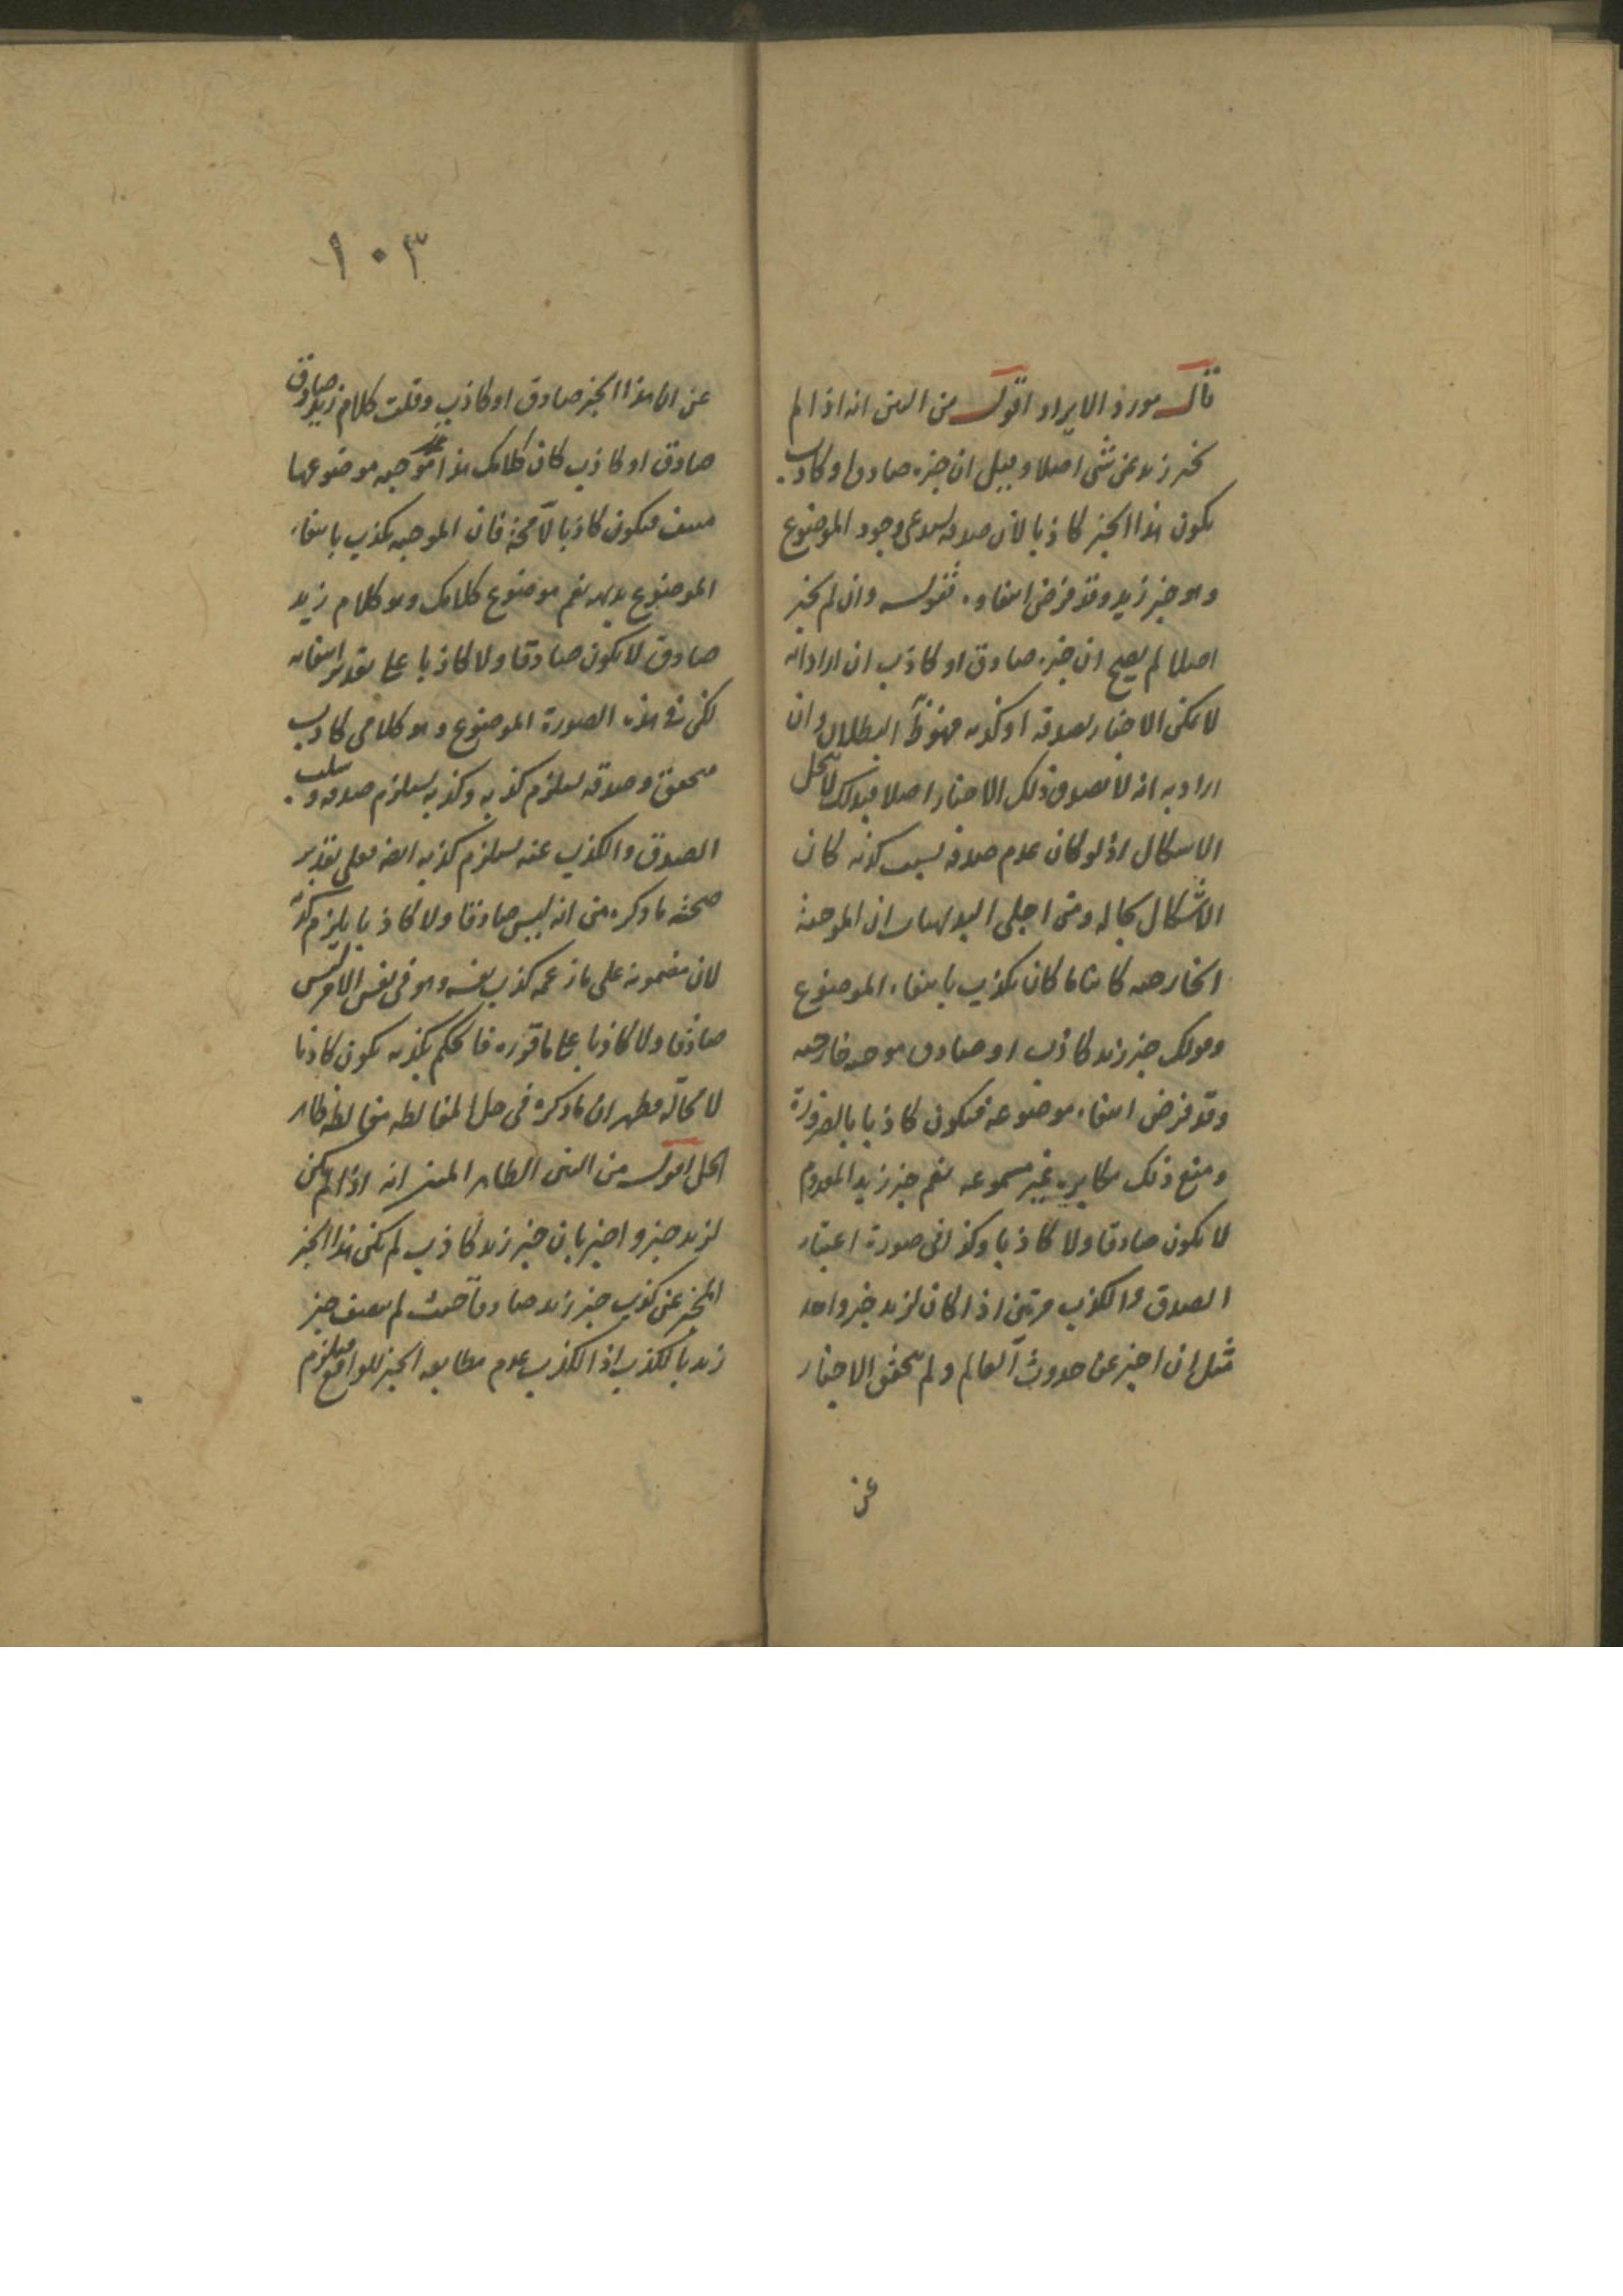 قال مورد الايراد اقول من البين انه اذا لم
يخبر زيد عن شى اصلا وقيل ان خبره صادق او كاذب
يكون هذا الخبر كاذبا لان صدقه يستدعى وجود الموضوع
وهو خبر زيد وقد فرض انتفاوه فقوله وان لم يخبر
اصلا لم يصح ان خبره صادق او كاذب ان اراد انه
لا يمكن الاخبار بصدقه او كذبه فهو ظ البطلان وان
اراد به انه لا يصدق ذلك الاخبار اصلا فبذلك لا ينحل
الاشكال اذ لو كان عدم صدقه بسبب كذبه كان
الاشكال بحاله ومن اجلى البديهيات ان الموجبة
الخارجيه كائنا ما كان يكذب بانتفاء الموضوع
وقولك خبر زيد كاذب او صادق موجبه خارجيه
وقد فرض انتفاء موضوعه فيكون كاذبا بالضرورة
ومنع ذلك مكابره غير مسموعه نعم خبر زيد المعدوم
لا يكون صادقا ولا كاذبا وكذا فى صورة اعتبار
الصدق والكذب مرتين اذا كان لزيد خبر واحد
مثل ان اخبر عن حدوث العالم ولم يتحقق الاخبار
عن
١٠٣
عن ان هذا الخبر صادق او كاذب وقلت كلام زيد صادق
صادق او كاذب كان كلامك هذا موجبه موضوعها
منتف فيكون كاذبا لا محة فان الموجبه يكذب بانتفاء
الموضوع بديهه نعم موضوع كلامك وهو كلام زيد
صادق لا يكون صادقا ولا كاذبا على تقدير انتفائه
لكن فى هذه الصورة الموضوع وهو كلامى كاذب
متحقق وصدقه يستلزم كذبه وكذبه يستلزم صدقه وسلب
الصدق والكذب عنه يستلزم كذبه ايضا فعلى تقدير
صحة ما ذكره من انه ليس صادقا ولا كاذبا يلزم كذبه
لان مضمونه على ما زعمه كذب نفسه وهو فى نفس الامر ليس
صادقا ولا كاذبا على ما قرره فالحكم بكذبه يكون كاذبا
لا محالة فظهر ان ما ذكره فى حل المغالطه مغالطه ظاهر
الحل اقول من البين الظاهر المنير انه اذا لم يكن
لزيد خبر واخبر بان خبر زيد كاذب لم يكن هذا الخبر
المخبر عن كذب خبر زيد صادقا حيث لم يتصف خبر
زيد بالكذب اذ الكذب عدم مطابقه الخبر للواقع فيلزم